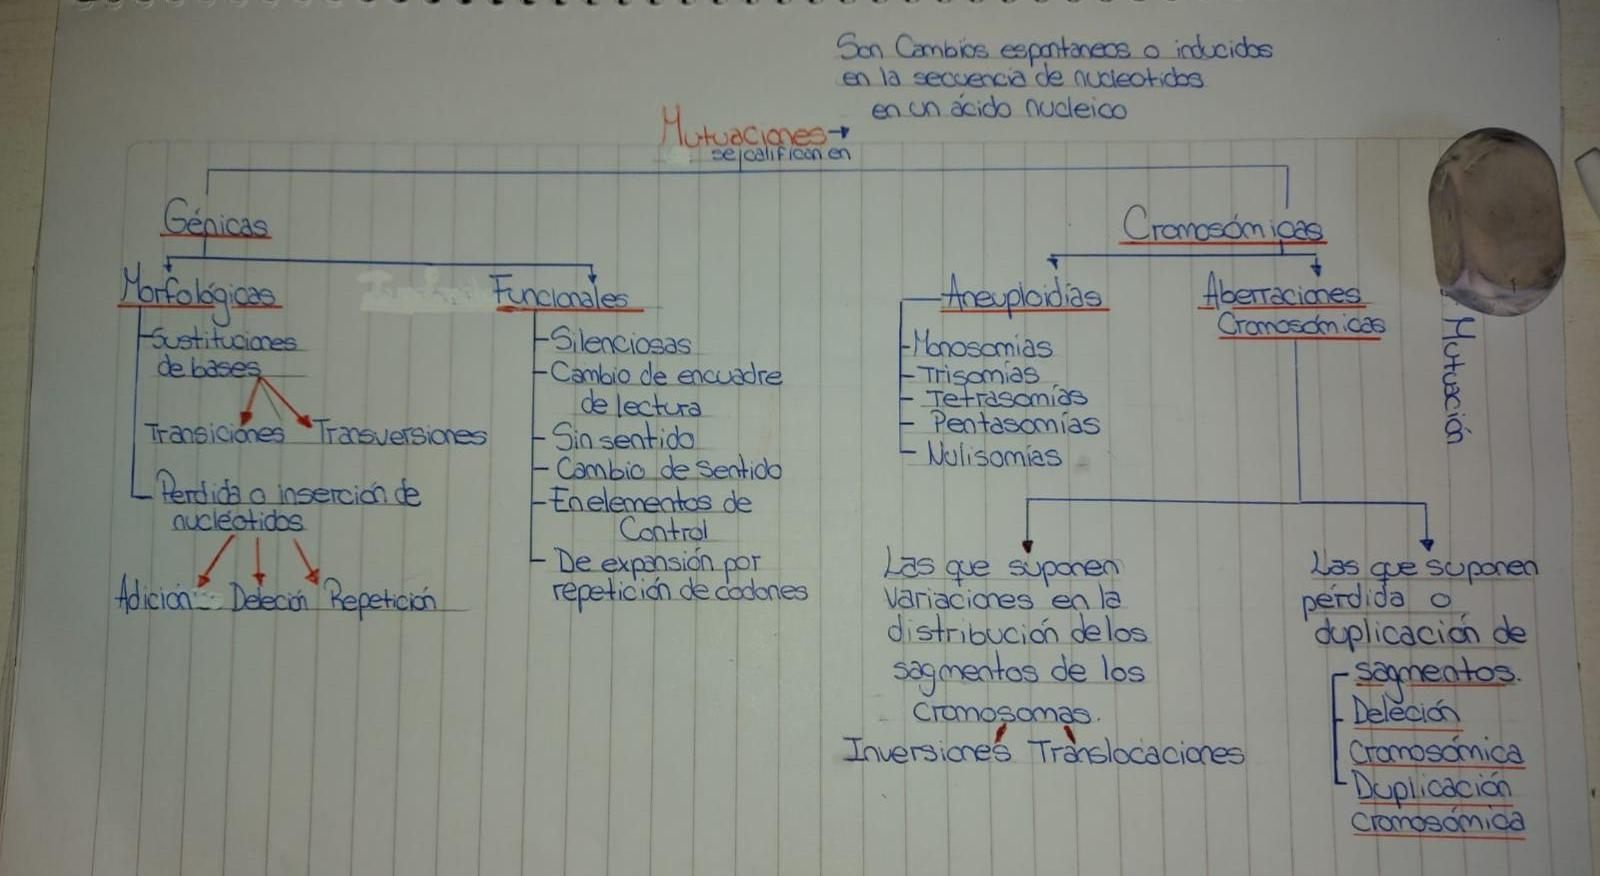 Son Cambios espontaneos o inducidos
en la secuencia de nucleotidos
en un ácido nucleico
Mutuaciones→
se califican en
Génicas
Morfológicas
Sustituciones
de bases
Transiciones Transversiones
Perdida o inserción de
nucleótidos
Adición Deleción Repetición
Funcionales
-Silenciosas
-Cambio de encuadre
de lectura
-Sin sentido
-Cambio de Sentido
-En elementos de
Control
-De expansión por
repetición de codones
Cromosómicas
Aneuploidías
-Monosomías
-Trisomías
-Tetrasomías
-Pentasomías
-Nulisomías
Aberraciones
Cromosómicas
Las que suponen
variaciones en la
distribución de los
sagmentos de los
cromosomas.
Inversiones Translocaciones
Las que suponen
pérdida o
duplicación de
sagmentos.
Deleción
Cromosómica
Duplicación
cromosómica
Mutuación